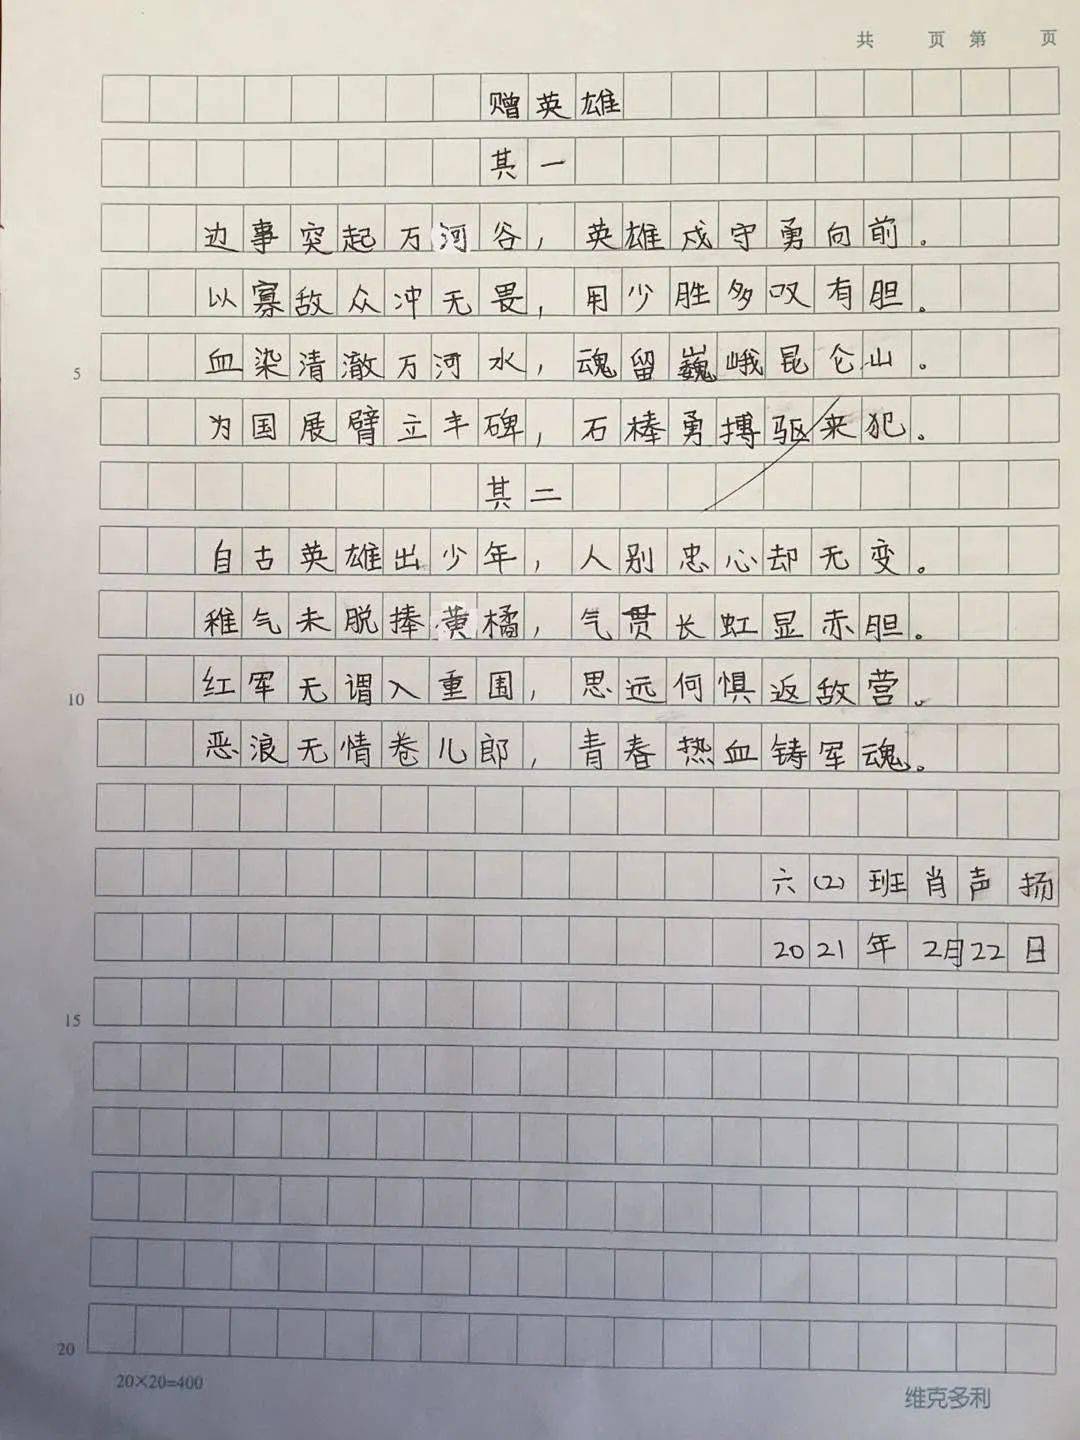 共 页 第 页
赠英雄
其一
边事突起万河谷，英雄戍守勇向前。
以寡敌众冲无畏，用少胜多叹有胆。
5 血染清澈万河水，魂留巍峨昆仑山。
为国展臂立丰碑，石棒勇搏驱来犯。
其二
自古英雄出少年，人别忠心却无变。
稚气未脱捧黄橘，气贯长虹显赤胆。
10 红军无谓入重围，思远何惧返敌营。
恶浪无情卷儿郎，青春热血铸军魂。
六(2)班肖声扬
2021年2月22日
15
20
20×20=400
维克多利